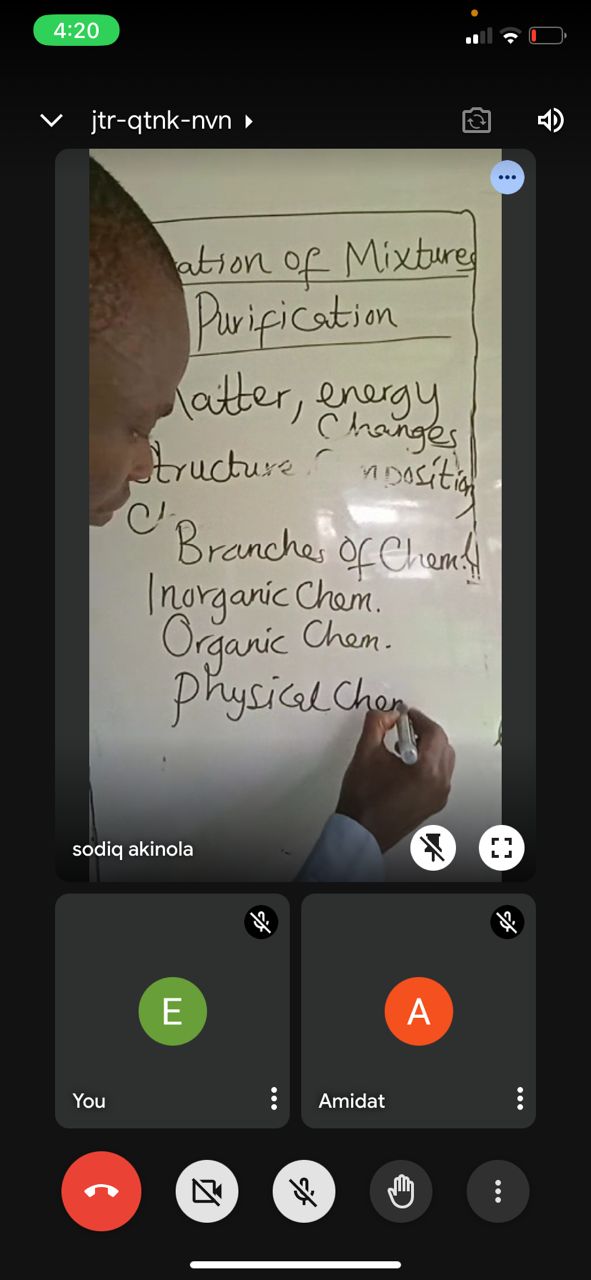 4:20
jtr-qtnk-nvn
ation of Mixtures
Purification
atter, energy
Changes
tructure
nposition
Branches Of Chem.
Inorganic Chem.
Organic Chem.
Physical Chem
sodiq akinola
E
A
You
Amidat